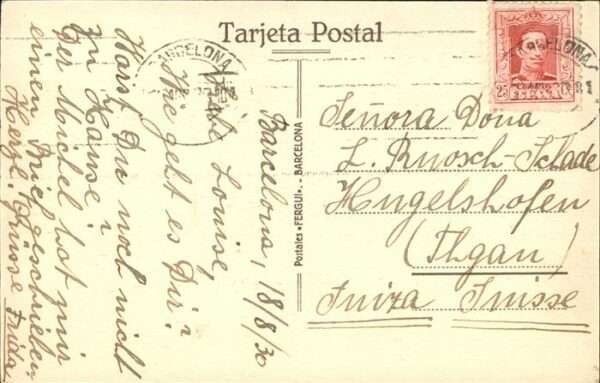 Tarjeta Postal
BARCELONA
Barcelona, 18/8/30
Liebe Louise,
Wie geht es Dir?
Warst Du noch nicht
zu Hause?
Der Michel hat mir
einen Brief geschrieben
Herzl. Grüsse Frida
Postales «FERGUI». - BARCELONA
BARCELONA
25
Señora Dona
L. Ruosch-Schade
Hugelshofen
(Thgau)
Suiza Suisse